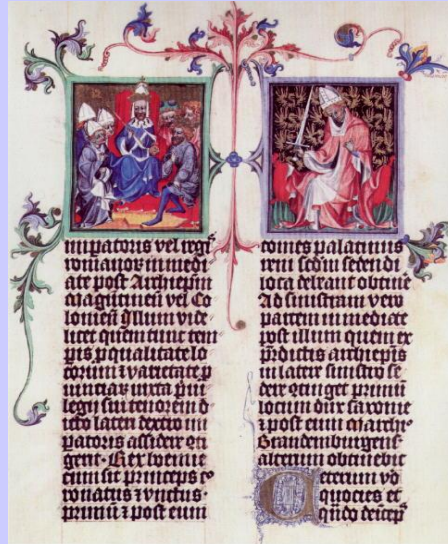 imperatoris vel regis
romanorum inmedi
ate post Archiepm
Magūtineñ vel Co
lonieñ illum vide
licet quem tunc tem
pis p qualitate lo
corum ⁊ varietate p
vinciaꝝ iuxta p̄ui
legii sui tenorem d
cto lateri dextro im
patoris assidere 
gent Rex boemie
cum sit princeps co
ronatus ⁊ unctus
primū ⁊ post eum
comes palatinus
reni scdm sedendi
loca debeant obtine
Ad sinistram vero
partem inmediate
post illum quem ex
p̄dictis archiepis
in latere sinistro se
dere otinget primū
locum dux saxonie
⁊ post eum marchio
Brandemburgens
alterum obtinebit
Ceterum vo
quocies et
qn̄do deincep